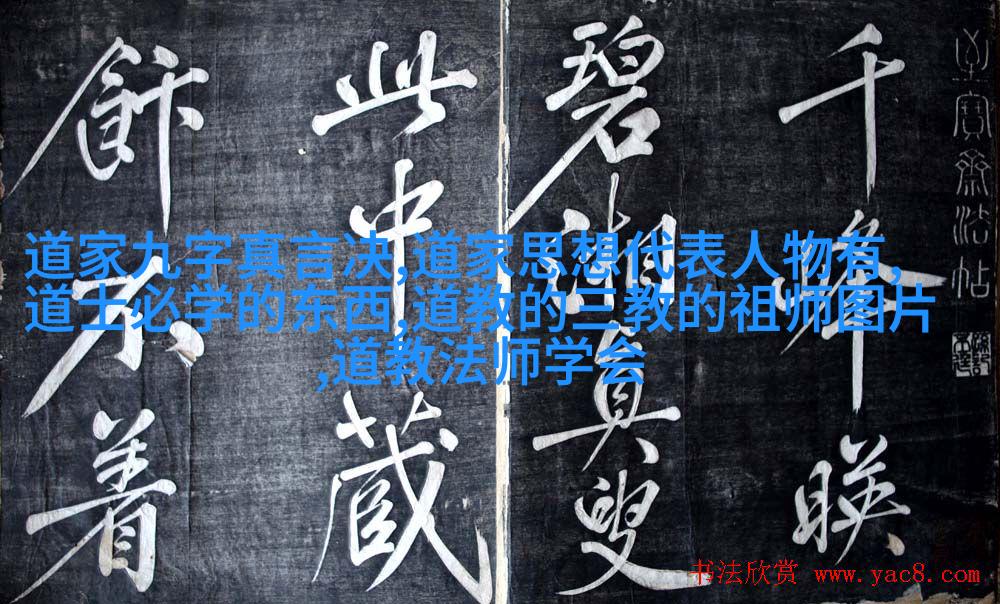 至寶齋法帖
千峰映
碧湘真叟
此中藏
飰不着
道家九字真言决,道家思想代表人物有,
道士必学的东西,道教的三教的祖师图片
,道教法师学会
书法欣赏 www.yac8.com